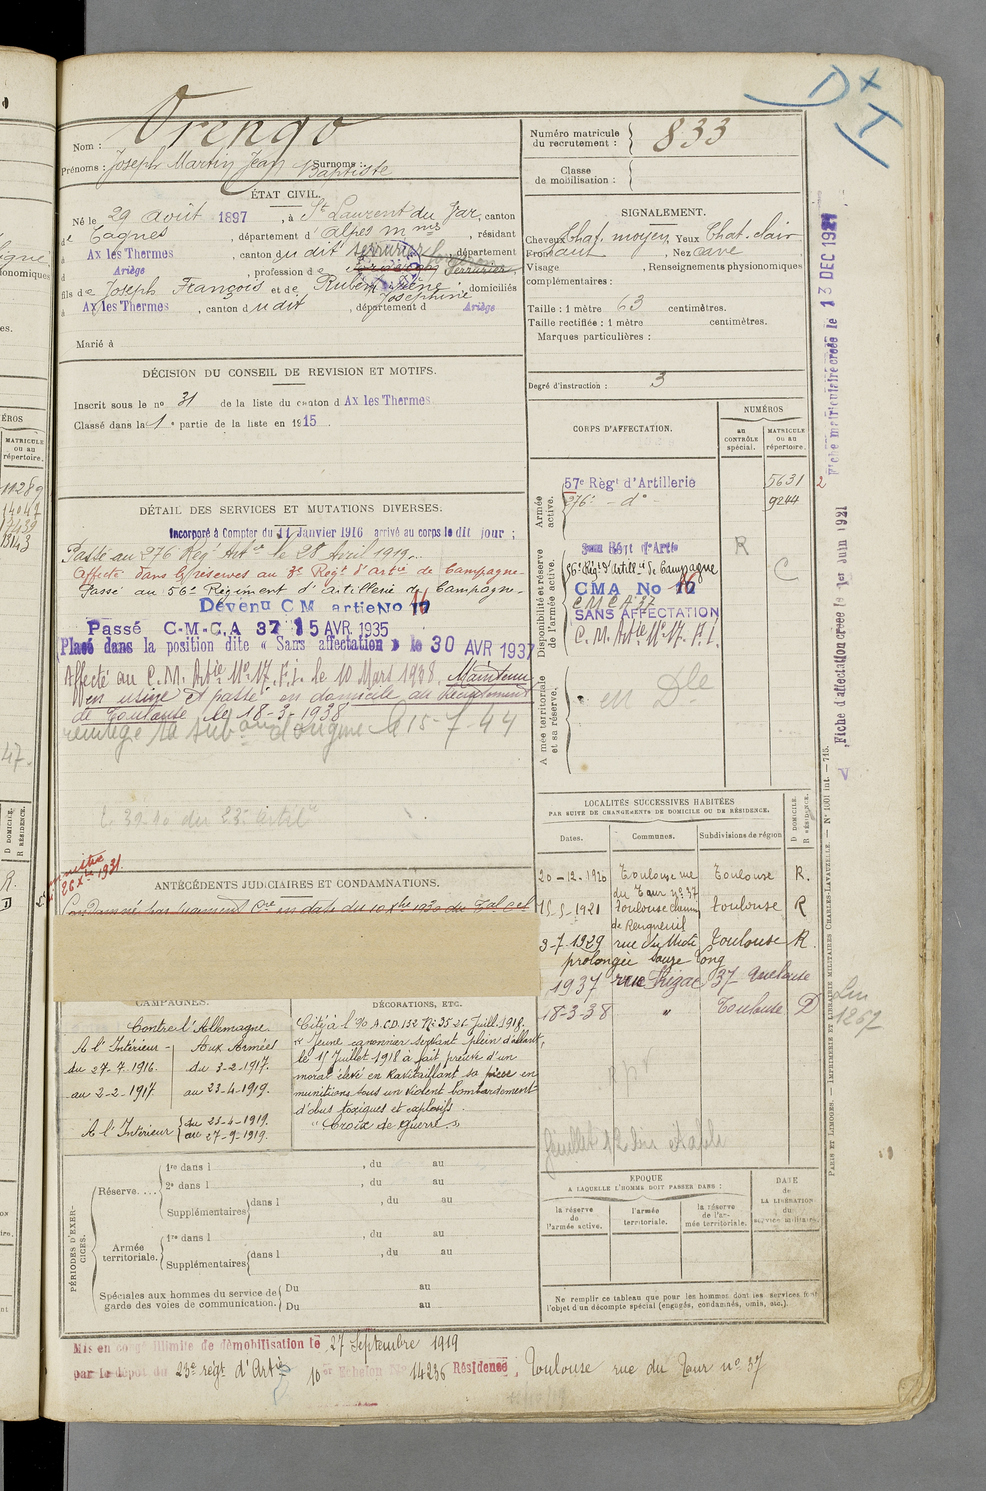 Nom : Orengo
Prénoms : Joseph Martin Jean Baptiste Surnoms :
Numéro matricule du recrutement : 833
Classe de mobilisation :
ÉTAT CIVIL.
Né le 29 août 1897, à St Laurent du Var, canton
de Cagnes, département d'Alpes Mmes, résidant
à Ax les Thermes, canton du dit, département
d Ariège, profession de Serrurier
fils de Joseph François et de Rubin Irène Joséphine, domiciliés
à Ax les Thermes, canton du dit, département d Ariège
Marié à
SIGNALEMENT.
Cheveux Chat. moyen, Yeux Chat. clair
Front haut, Nez cave
Visage , Renseignements physionomiques
complémentaires :
Taille : 1 mètre 63 centimètres.
Taille rectifiée : 1 mètre centimètres.
Marques particulières :
Degré d'instruction : 3
DÉCISION DU CONSEIL DE REVISION ET MOTIFS.
Inscrit sous le no 31 de la liste du canton d Ax les Thermes
Classé dans la 1e partie de la liste en 1915
DÉTAIL DES SERVICES ET MUTATIONS DIVERSES.
Incorporé à Compter du 11 Janvier 1916 arrivé au corps le dit jour ;
Passé au 276e Régt Artie le 28 Avril 1919.
Affecté dans les réserves au 3e Régt d'artie de Campagne
Passé au 56e Régiment d'Artillerie de Campagne
Dévenu C M artie No 16
Passé C-M-C.A 37 15 AVR. 1935
Placé dans la position dite « Sans affectation » le 30 AVR 1937
Affecté au C.M. Artie No 17. F.i. le 10 Mars 1938. Maintenu
en usine et passé en domicile au Recrutement
de Toulouse le 18-3-1938
réintègre sa subon d'origine le 15-7-44
CORPS D'AFFECTATION.
NUMÉROS
au CONTRÔLE spécial.
MATRICULE ou au répertoire.
Armée active.
57e Règt d'Artillerie 5631
276e - do - 9244
Disponibilité et réserve de l'armée active.
56e Régt d'Artillie de Campagne
CMA No 16
C M C A 37
SANS AFFECTATION
C. M. Artie No 17. F.I.
R
C
Armée territoriale et sa réserve.
en Dle
LOCALITÉS SUCCESSIVES HABITÉES
PAR SUITE DE CHANGEMENTS DE DOMICILE OU DE RÉSIDENCE.
Dates. Communes. Subdivisions de région D DOMICILE. R RÉSIDENCE.
20-12-1920 Toulouse rue du Taur no 37 Toulouse R.
15-5-1921 Toulouse chemin de Rangueuil Toulouse R
3-7-1929 rue du Midi prolongée Toulouse R.
1937 rue 37 Toulouse
18-3-38 " Toulouse D
ANTÉCÉDENTS JUDICIAIRES ET CONDAMNATIONS.
CAMPAGNES.
Contre l'Allemagne.
A l'Intérieur - Aux Armées
du 27-7-1916. du 3-2-1917.
au 2-2-1917. au 23-4-1919.
A l'Intérieur du 23-4-1919.
au 27-9-1919.
DÉCORATIONS, ETC.
Cité à l'O. A.C.D. 132 No 35 21 Juill. 1918.
" Jeune canonnier servant plein d'allant,
le 15 Juillet 1918 a fait preuve d'un
moral élevé en Ravitaillant sa pièce en
munitions sous un violent bombardement
d'obus toxiques et explosifs.
" Croix de guerre "
PÉRIODES D'EXERCICES.
Réserve....
1re dans l , du au
2e dans l , du au
Supplémentaires dans l , du au
Armée territoriale.
1re dans l , du au
Supplémentaires dans l , du au
Spéciales aux hommes du service de garde des voies de communication.
Du au
Du au
ÉPOQUE
A LAQUELLE L'HOMME DOIT PASSER DANS :
la réserve de l'armée active.
l'armée territoriale.
la réserve de l'armée territoriale.
DATE de LA LIBÉRATION du service militaire.
Ne remplir ce tableau que pour les hommes dont les services font
l'objet d'un décompte spécial (engagés, condamnés, omis, etc.).
Mis en congé illimité de démobilisation le 27 Septembre 1919
par le dépôt du 23e régt d'Artie 10er Echelon No 14236 Résidence Toulouse rue du Taur no 37
Fiche matriculaire créée le 13 DEC 1921
Fiche d'affectation créée le 1er Juin 1921
PARIS ET LIMOGES. — IMPRIMERIE ET LIBRAIRIE MILITAIRES CHARLES-LAVAUZELLE. — No 1001 int. — 715.